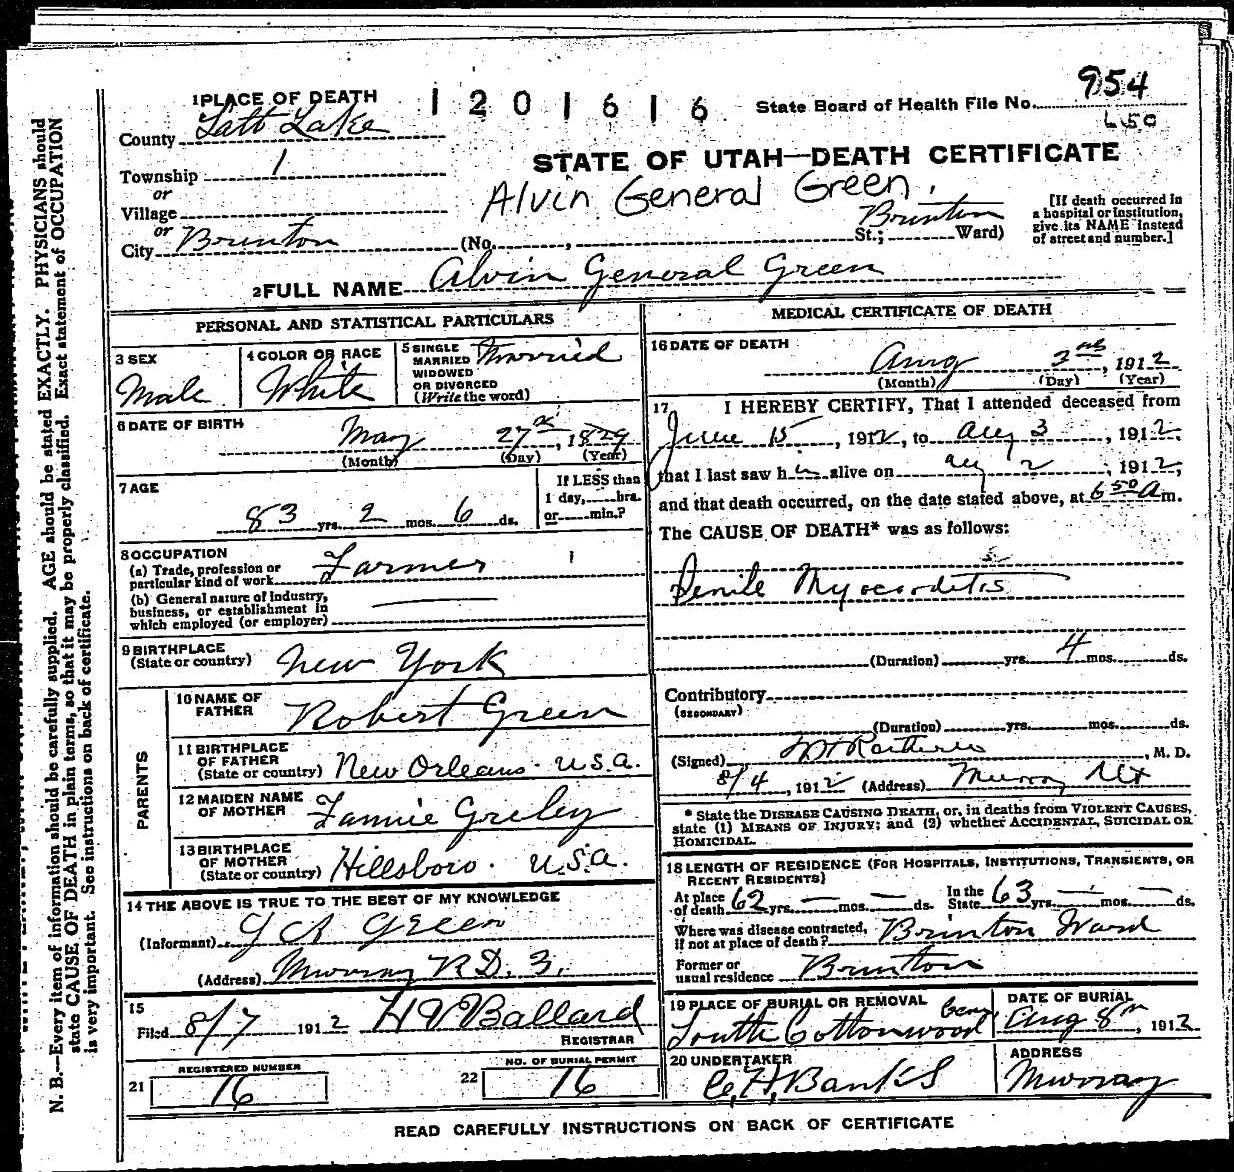 1 PLACE OF DEATH
1201616
State Board of Health File No. 954
County Salt Lake
STATE OF UTAH—DEATH CERTIFICATE
Township 1
or
Village
Alvin General Green.
or
City Brinton (No. , St.; Brinton Ward)
[If death occurred in a hospital or institution, give its NAME instead of street and number.]
2 FULL NAME Alvin General Green
PERSONAL AND STATISTICAL PARTICULARS
3 SEX
Male
4 COLOR OR RACE
White
5 SINGLE
MARRIED
WIDOWED
OR DIVORCED
(Write the word)
Married
6 DATE OF BIRTH
May 27th, 1829
(Month) (Day) (Year)
7 AGE
83 yrs. 2 mos. 6 ds.
If LESS than
1 day, hrs.
or min.?
8 OCCUPATION
(a) Trade, profession or
particular kind of work Farmer
(b) General nature of industry,
business, or establishment in
which employed (or employer)
9 BIRTHPLACE
(State or country) New York
PARENTS
10 NAME OF
FATHER Robert Green
11 BIRTHPLACE
OF FATHER
(State or country) New Orleans. U.S.A.
12 MAIDEN NAME
OF MOTHER Fannie Greley
13 BIRTHPLACE
OF MOTHER
(State or country) Hillsboro. U.S.A.
14 THE ABOVE IS TRUE TO THE BEST OF MY KNOWLEDGE
(Informant) Green
(Address) Murray R.D. 3.
15
Filed 8/7 1912 H V Ballard
REGISTRAR
21 REGISTERED NUMBER
16
22 NO. OF BURIAL PERMIT
16
MEDICAL CERTIFICATE OF DEATH
16 DATE OF DEATH
Aug , 1912
(Month) (Day) (Year)
17 I HEREBY CERTIFY, That I attended deceased from
June 15, 1912, to Aug 3, 1912,
that I last saw him alive on Aug 2, 1912,
and that death occurred, on the date stated above, at 6 50 A m.
The CAUSE OF DEATH* was as follows:
Senile Myocorditis
(Duration) yrs. 4 mos. ds.
Contributory
(SECONDARY)
(Duration) yrs. mos. ds.
(Signed) , M. D.
8/4, 1912 (Address) Murray Ut
* State the DISEASE CAUSING DEATH, or, in deaths from VIOLENT CAUSES,
state (1) MEANS OF INJURY; and (2) whether ACCIDENTAL, SUICIDAL OR
HOMICIDAL.
18 LENGTH OF RESIDENCE (FOR HOSPITALS, INSTITUTIONS, TRANSIENTS, OR
RECENT RESIDENTS)
At place
of death 62 yrs. — mos. — ds. In the
State 63 yrs. — mos. — ds.
Where was disease contracted,
if not at place of death? Brinton Ward
Former or
usual residence Brinton
19 PLACE OF BURIAL OR REMOVAL
South Cottonwood Cem.
DATE OF BURIAL
Aug 8th, 1912
20 UNDERTAKER
C. H. Banks
ADDRESS
Murray
READ CAREFULLY INSTRUCTIONS ON BACK OF CERTIFICATE
N. B.—Every item of information should be carefully supplied. AGE should be stated EXACTLY. PHYSICIANS should
state CAUSE OF DEATH in plain terms, so that it may be properly classified. Exact statement of OCCUPATION
is very important. See instructions on back of certificate.